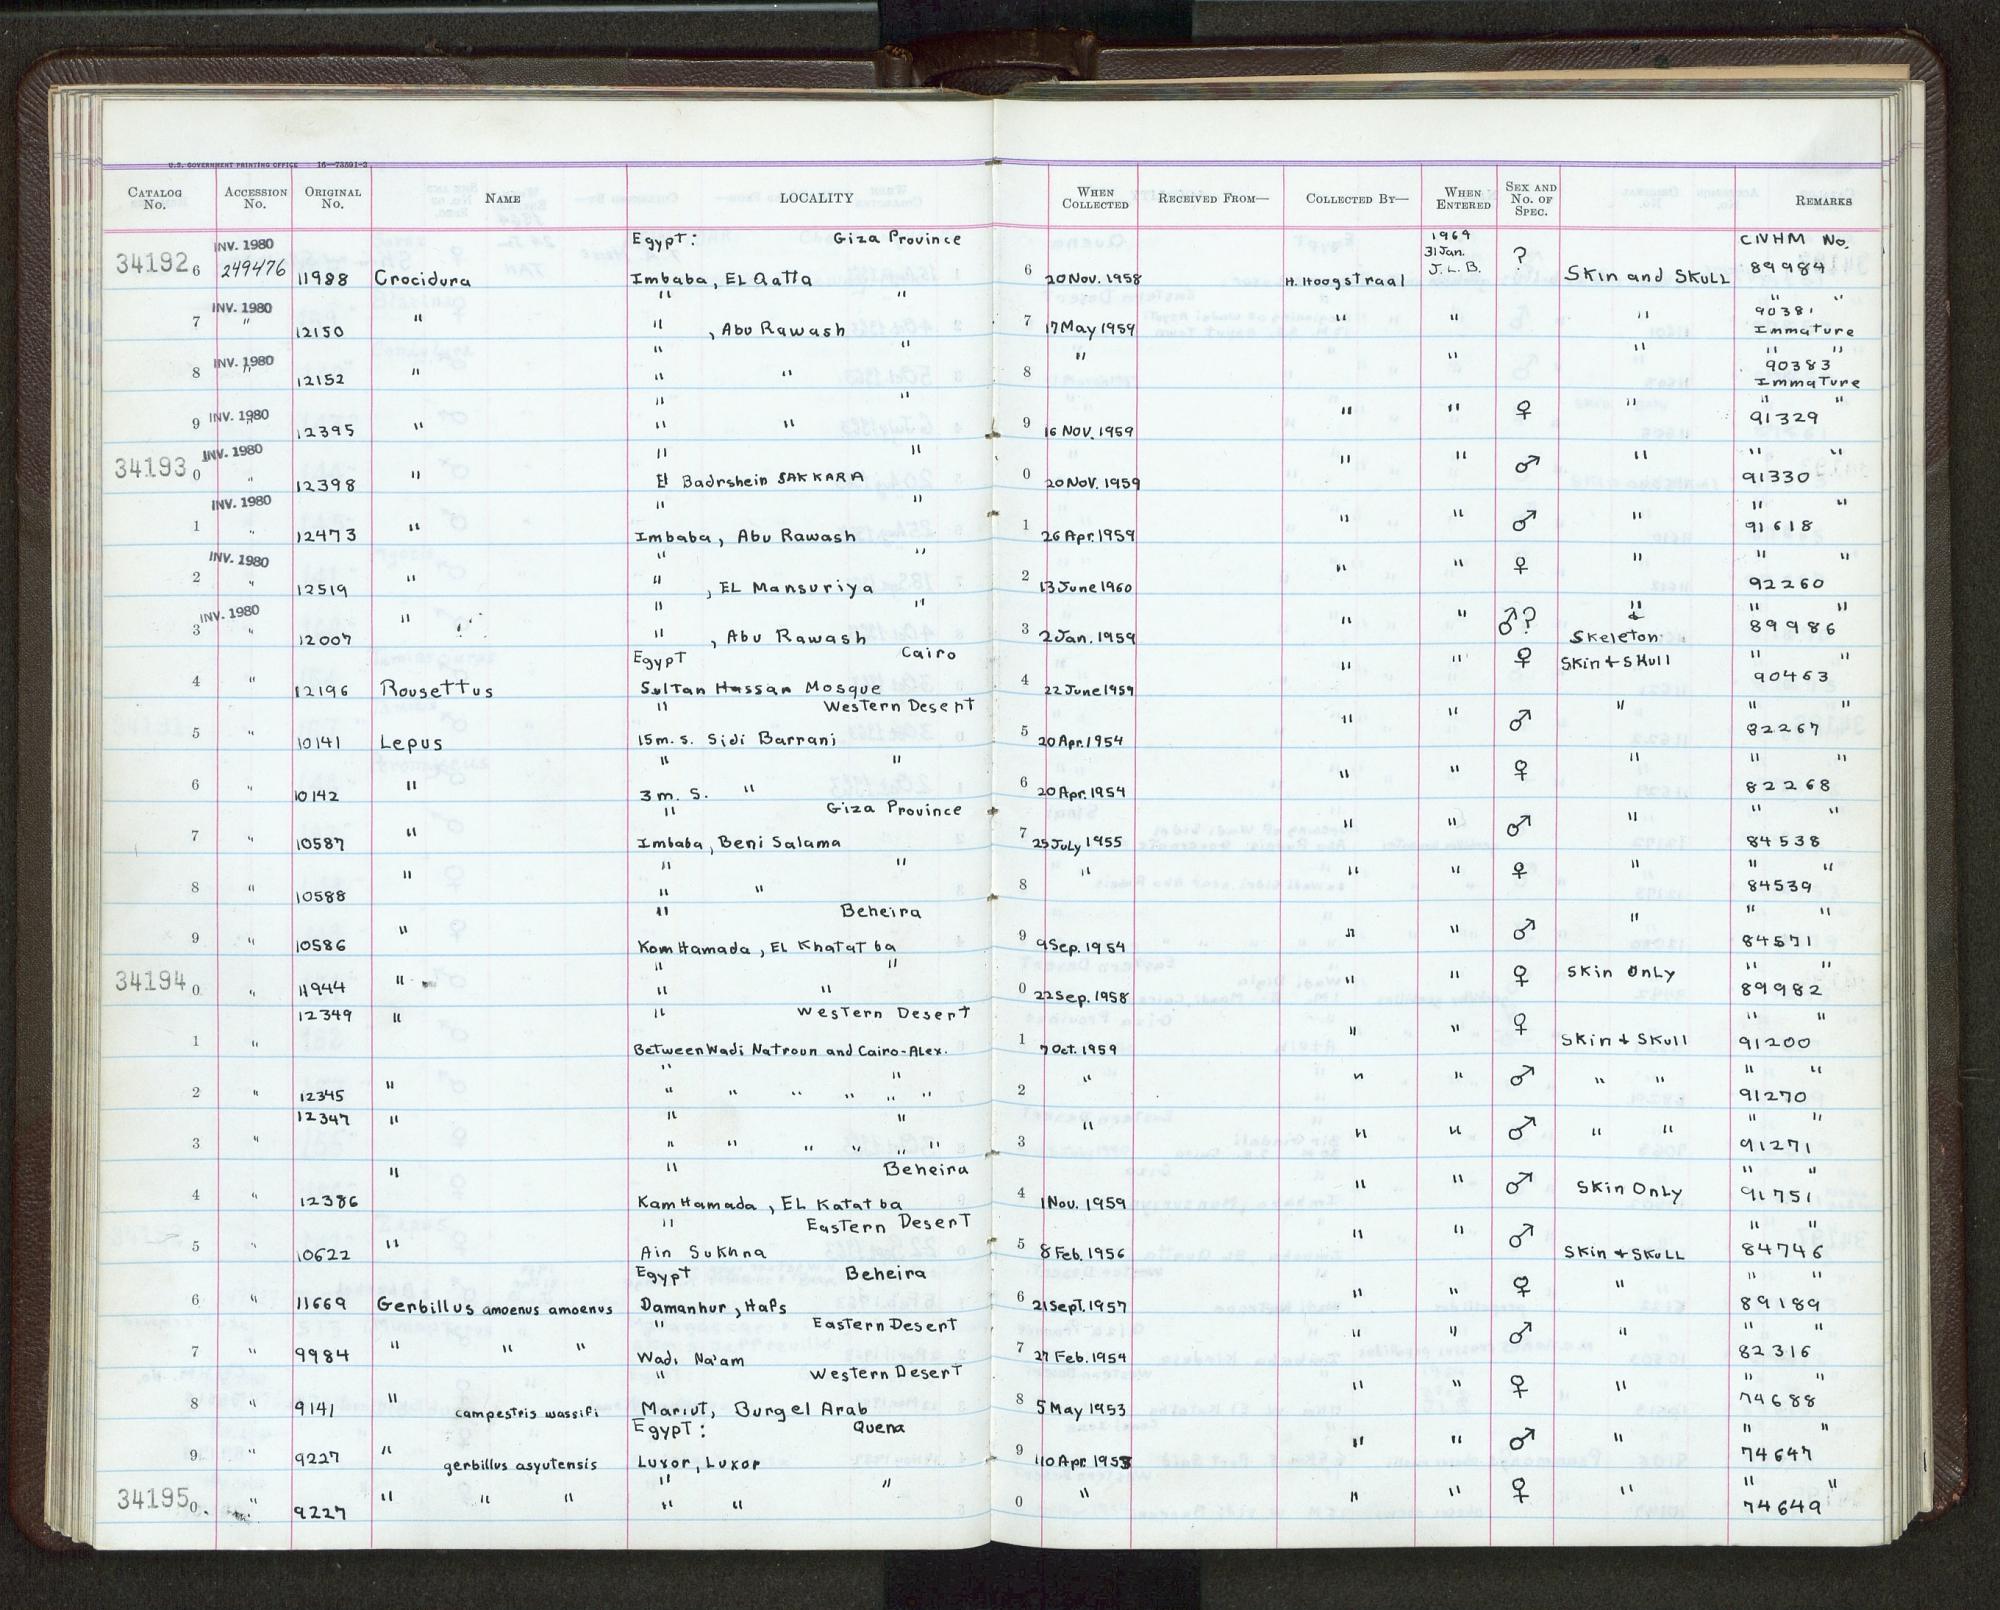 U.S. GOVERNMENT PRINTING OFFICE 16—73591-2
CATALOG No. ACCESSION No. ORIGINAL No. NAME LOCALITY WHEN COLLECTED RECEIVED FROM— COLLECTED BY— WHEN ENTERED SEX AND No. OF SPEC. REMARKS
INV. 1980 Egypt: Giza Province 1969 CNHM No.
34192 6 249476 11988 Crocidura Imbaba, EL Qatta 6 20 Nov. 1958 H. Hoogstraal 31 Jan. J.L.B. ? Skin and Skull 89984
INV. 1980 " " " "
7 " 12150 " " , Abu Rawash 7 17 May 1959 " " " 90381 Immature
INV. 1980 " " " "
8 " 12152 " " " 8 " " " 90383 Immature
INV. 1980 " " " "
9 " 12395 " " " 9 16 Nov. 1959 " " ♀ " 91329
INV. 1980 " " " "
34193 0 " 12398 " El Badrshein SAKKARA 0 20 Nov. 1959 " " ♂ " 91330
INV. 1980 " " "
1 " 12473 " Imbaba, Abu Rawash 1 26 Apr. 1959 " " ♂ " 91618
INV. 1980 " " " "
2 " 12519 " " , EL Mansuriya 2 13 June 1960 " " ♀ " 92260
INV. 1980 " " " "
3 " 12007 " " , Abu Rawash 3 2 Jan. 1959 " " ♂? " & Skeleton 89986
Egypt Cairo " "
4 " 12196 Rousettus Sultan Hassan Mosque 4 22 June 1959 " " ♀ Skin & Skull 90463
" Western Desert " "
5 " 10141 Lepus 15 m. S. Sidi Barrani 5 20 Apr. 1954 " " ♂ " 82267
" " " "
6 " 10142 " 3 m. S. " 6 20 Apr. 1954 " " ♀ " 82268
" Giza Province " "
7 " 10587 " Imbaba, Beni Salama 7 25 July 1955 " " ♂ " 84538
" " " "
8 " 10588 " " " 8 " " " ♀ " 84539
" Beheira " "
9 " 10586 " Kom Hamada, EL Khatatba 9 9 Sep. 1954 " " ♂ " 84571
" " " "
34194 0 " 11944 " " " 0 22 Sep. 1958 " " ♀ Skin Only 89982
" Western Desert " "
1 " 12349 " Between Wadi Natroun and Cairo-Alex. 1 7 Oct. 1959 " " ♀ Skin & Skull 91200
" " " "
2 " 12345 " " " " " " " 2 " " " ♂ " " 91270
" " " "
3 " 12347 " " " " " " " 3 " " " ♂ " " 91271
" Beheira " "
4 " 12386 " Kam Hamada, EL Katatba 4 1 Nov. 1959 " " ♂ Skin Only 91751
" Eastern Desert " "
5 " 10622 " Ain Sukhna 5 8 Feb. 1956 " " ♂ Skin & Skull 84746
Egypt Beheira " "
6 " 11669 Gerbillus amoenus amoenus Damanhur, Hafs 6 21 Sept. 1957 " " ♀ " 89189
" Eastern Desert " "
7 " 9984 " " " Wadi Na'am 7 27 Feb. 1954 " " ♂ " 82316
" Western Desert " "
8 " 9141 " campestris wassifi Mariut, Burg el Arab 8 5 May 1953 " " ♀ " 74688
Egypt: Quena " "
9 " 9227 " gerbillus asyutensis Luxor, Luxor 9 10 Apr. 1953 " " ♂ " 74647
" " " "
34195 0 " 9227 " " " " " 0 " " " ♀ " 74649